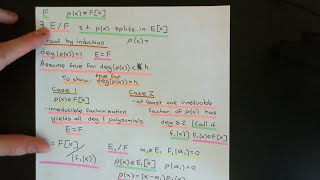 E p(x) ∈ F[x]
∃ E/F s.t. p(x) splits in E[x]
Proof by induction p(x) =
deg(p(x)) = 1 E = F
Assume true for deg(p(x)) < n
To show: true for deg(p(x)) = n
Case 1
p(x) ∈ F[x]
- irreducible factorization
yields all deg 1 polynomials
E = F
Case 2
- at least one irreducible
factor of p(x) has
deg ≥ 2 (call it
f₁(x)) f₁(x) ∈ F[x]
= F[x]/(f₁(x))
E₁/F α₁ ∈ E₁ f₁(α₁) = 0
p(x) ∈ E₁[x] p(α₁) = 0
p(x) = (x - α₁)